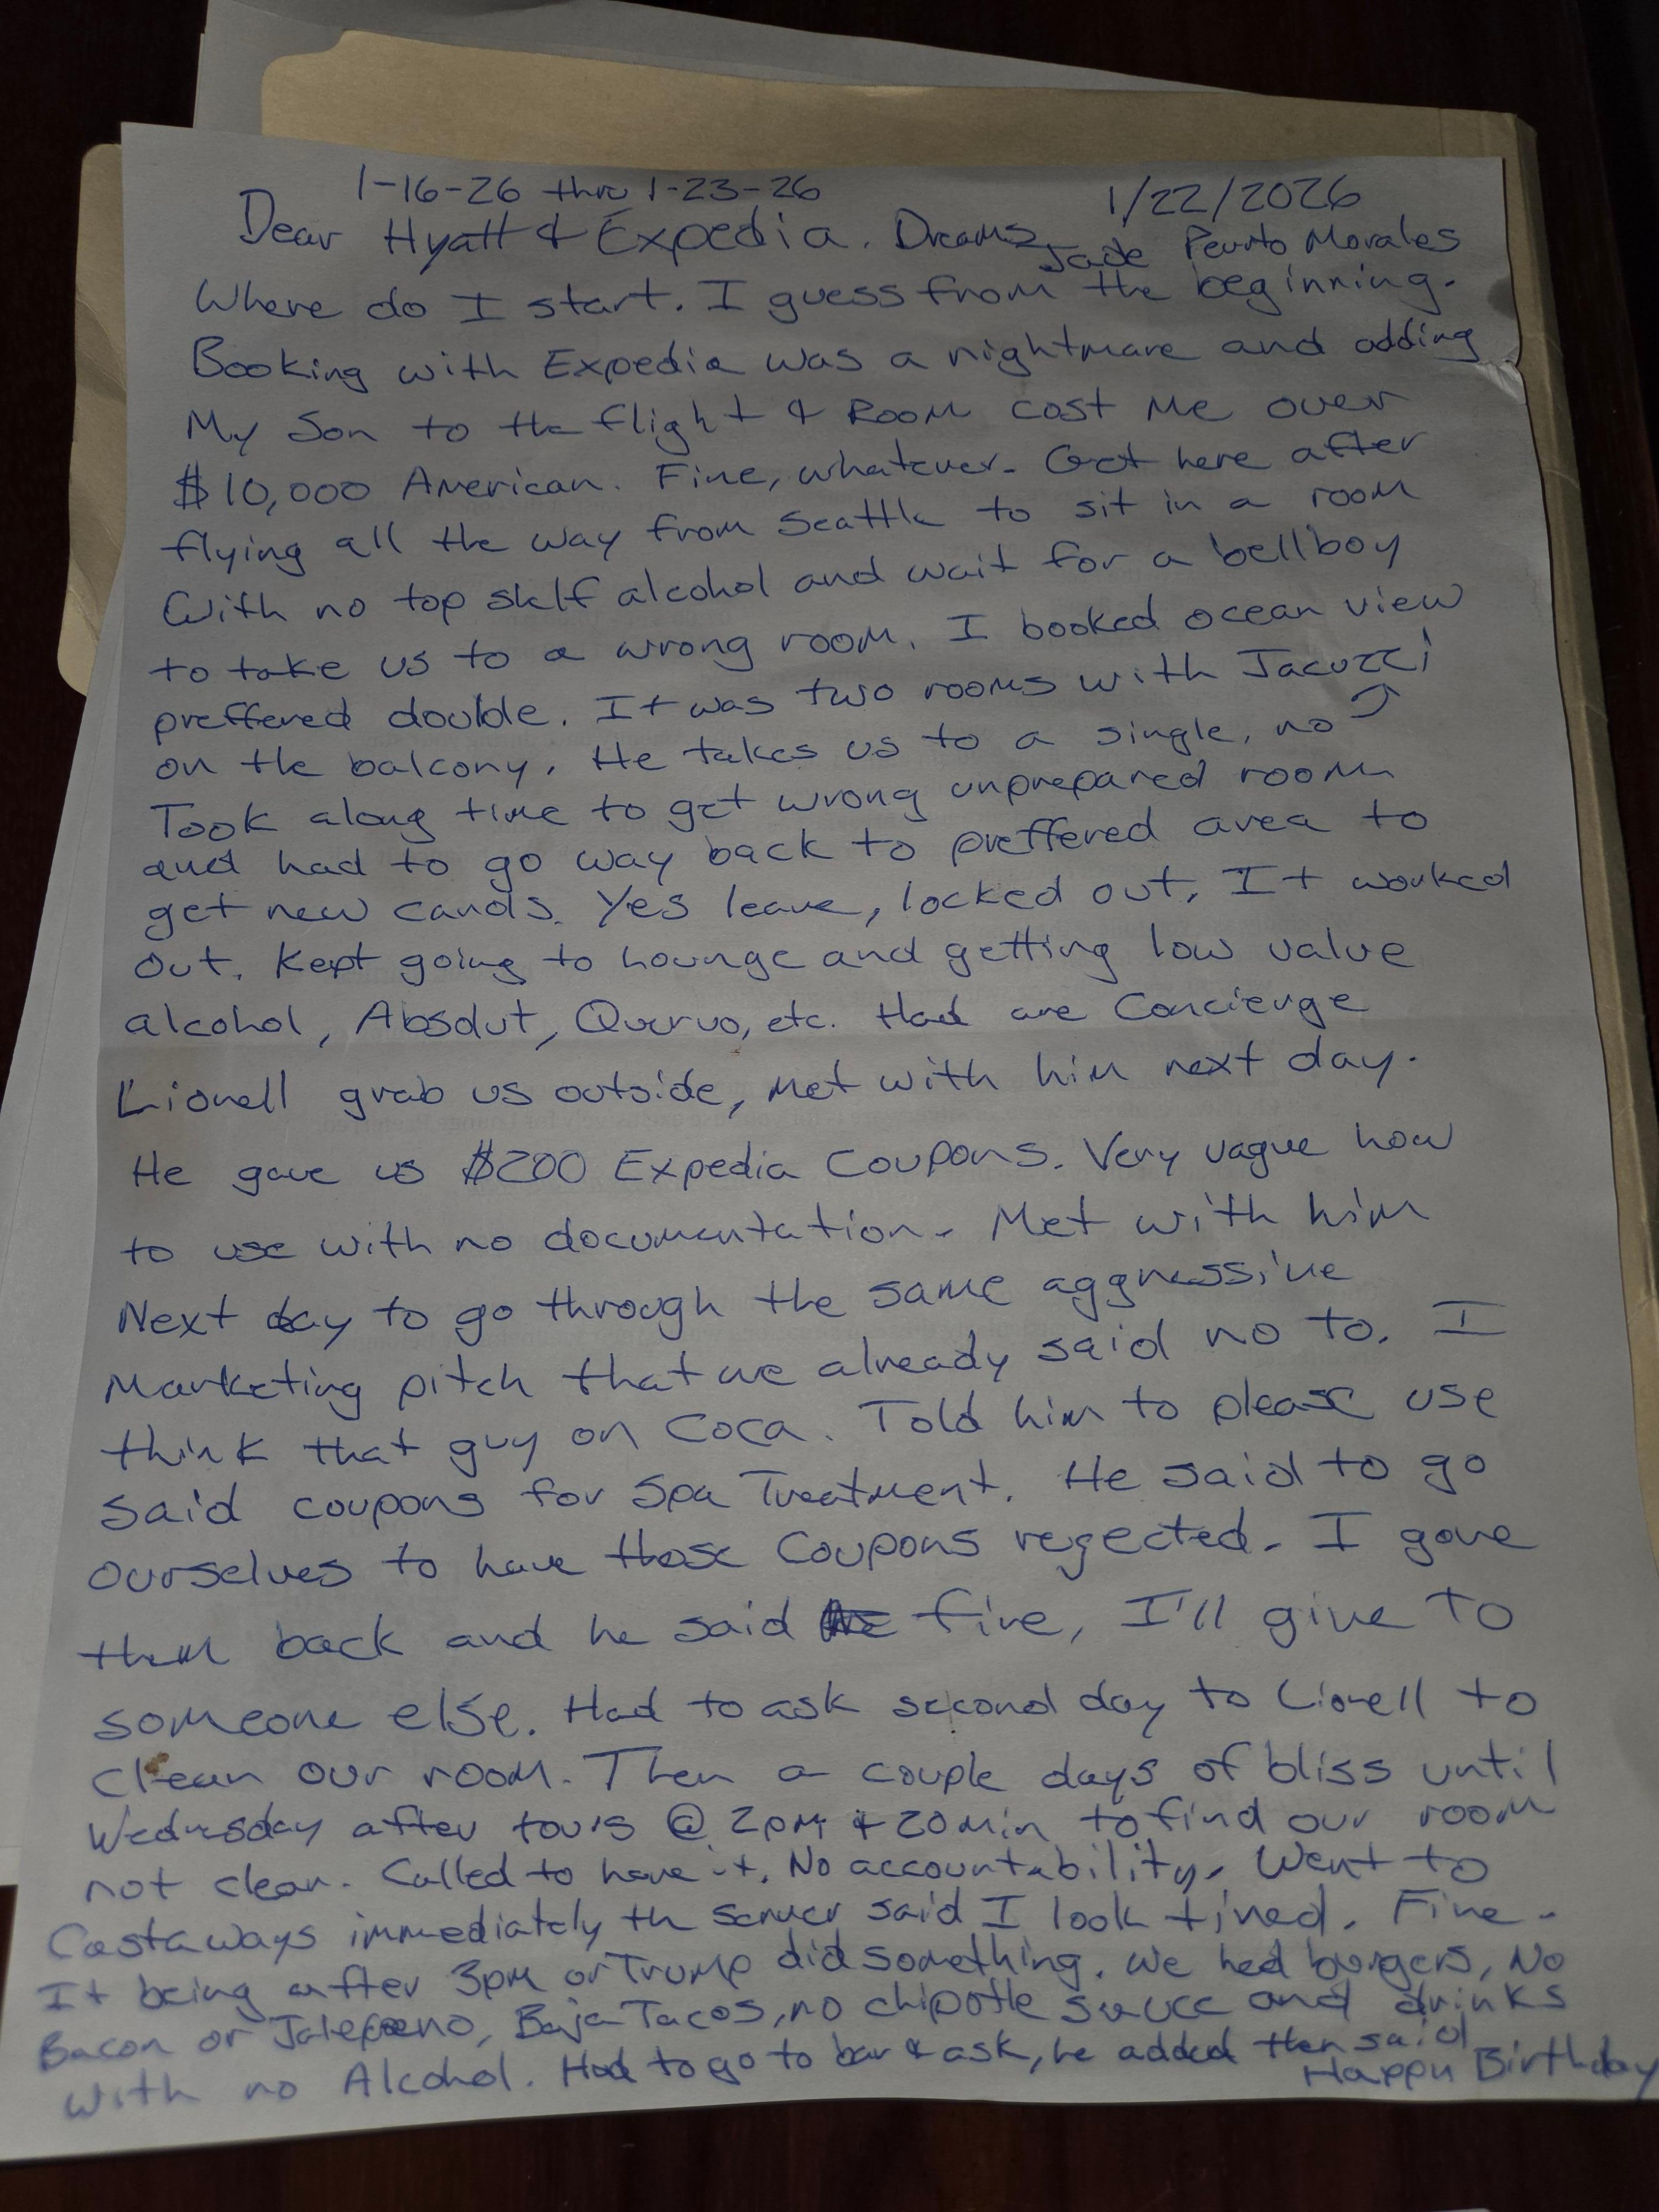 1-16-26 thru 1-23-26 1/22/2026
Dear Hyatt & Expedia. Dreams Jade Peurto Morales
Where do I start. I guess from the beginning.
Booking with Expedia was a nightmare and adding
My Son to the flight & Room cost Me over
$10,000 American. Fine, whatever. Got here after
flying all the way from Seattle to sit in a room
With no top shelf alcohol and wait for a bellboy
to take us to a wrong room. I booked ocean view
preffered double. It was two rooms with Jacuzzi
on the balcony. He takes us to a single, no
Took along time to get wrong unprepared room
and had to go way back to preffered area to
get new cards. Yes leave, locked out. It worked
out. Kept going to lounge and getting low value
alcohol, Absolut, Quervo, etc. Had are Concierge
Lionell grab us outside, met with him next day.
He gave us $200 Expedia Coupons. Very vague how
to use with no documentation. Met with him
Next day to go through the same aggressive
Marketing pitch that we already said no to. I
think that guy on Coca. Told him to please use
said coupons for Spa Treatment. He said to go
ourselves to have those Coupons regected. I gave
them back and he said fine, I'll give to
someone else. Had to ask second day to Lionell to
clean our room. Then a couple days of bliss until
Wednesday after tours @ 2pm & 20min to find our room
not clean. Called to have it. No accountability. Went to
Castaways immediately the server said I look tired. Fine.
It being after 3pm or Trump did something. We had burgers, No
Bacon or Jalepeno, Baja Tacos, no chipotle sauce and drinks
with no Alcohol. Had to go to bar & ask, he added then said
Happy Birthday